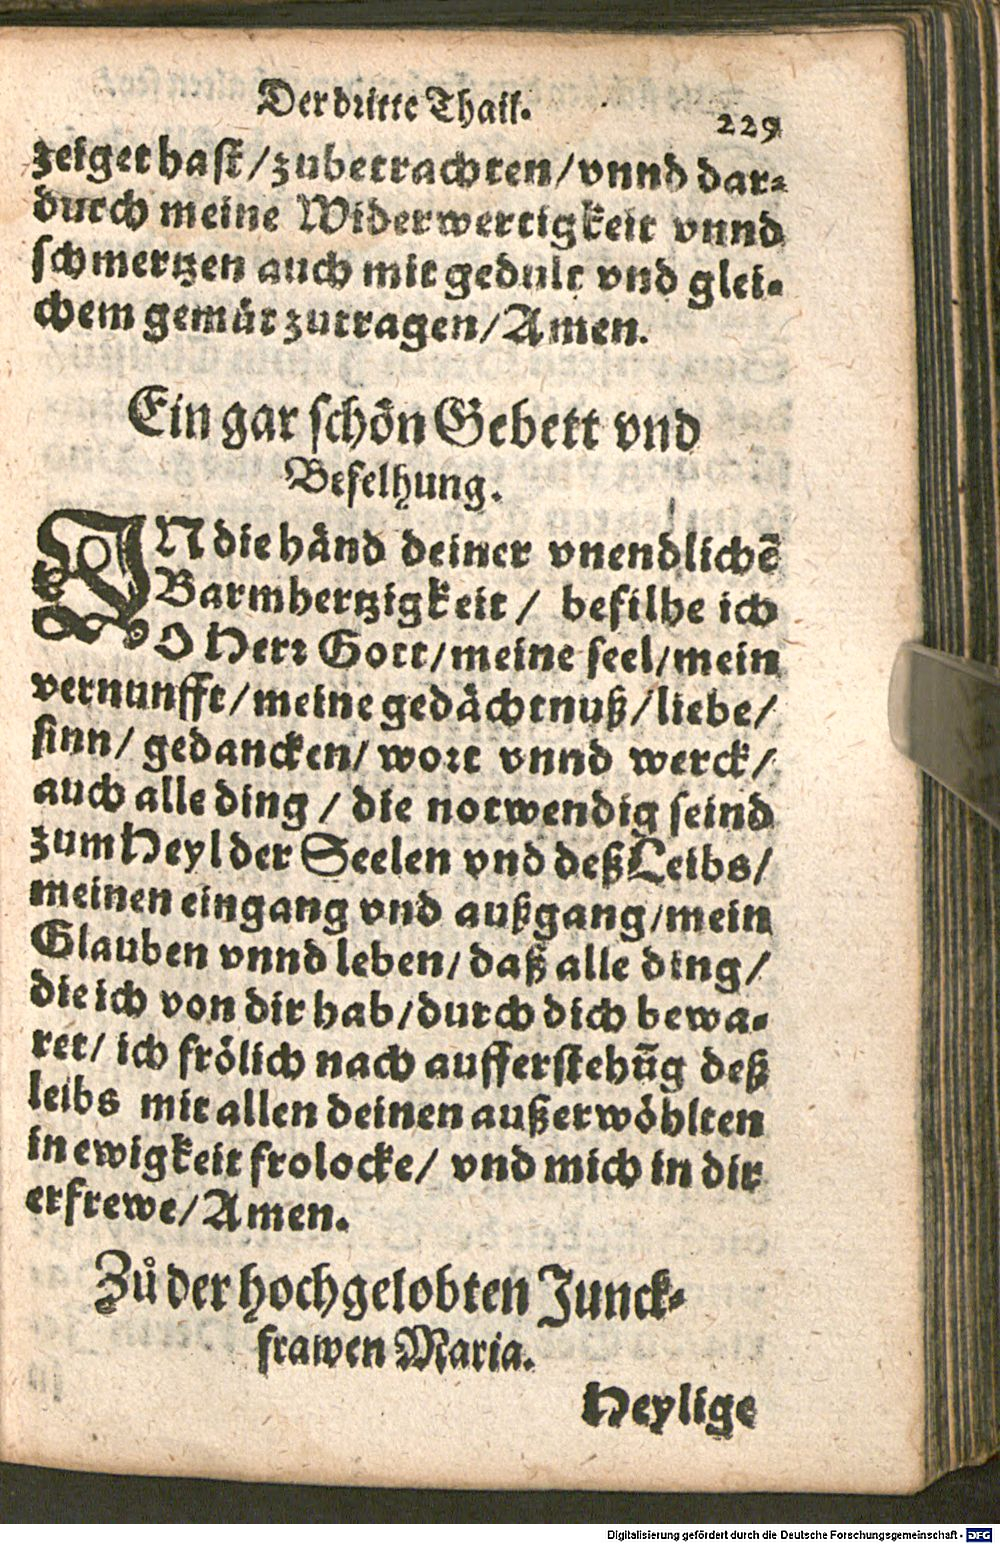 Der dritte Thail.
229
zeiget hast/ zubetrachten/ vnnd dar-
durch meine Widerwertigkeit vnnd
schmertzen auch mit gedult vnd glei-
chem gemüt zutragen/ Amen.
Ein gar schön Gebett vnd
Befelhung.
IN die händ deiner vnendlichē
Barmhertzigkeit/ befilhe ich
O Herr Gott/ meine seel/ mein
vernunfft/ meine gedächtnuß/ liebe/
sinn/ gedancken/ wort vnnd werck/
auch alle ding/ die notwendig seind
zum Heyl der Seelen vnd deß Leibs/
meinen eingang vnd außgang/ mein
Glauben vnnd leben/ daß alle ding/
die ich von dir hab/ durch dich bewa-
ret/ ich frölich nach aufferstehūg deß
leibs mit allen deinen außerwöhlten
in ewigkeit frolocke/ vnd mich in dir
erfrewe/ Amen.
Zů der hochgelobten Junck-
frawen Maria.
Heylige
Digitalisierung gefördert durch die Deutsche Forschungsgemeinschaft - DFG